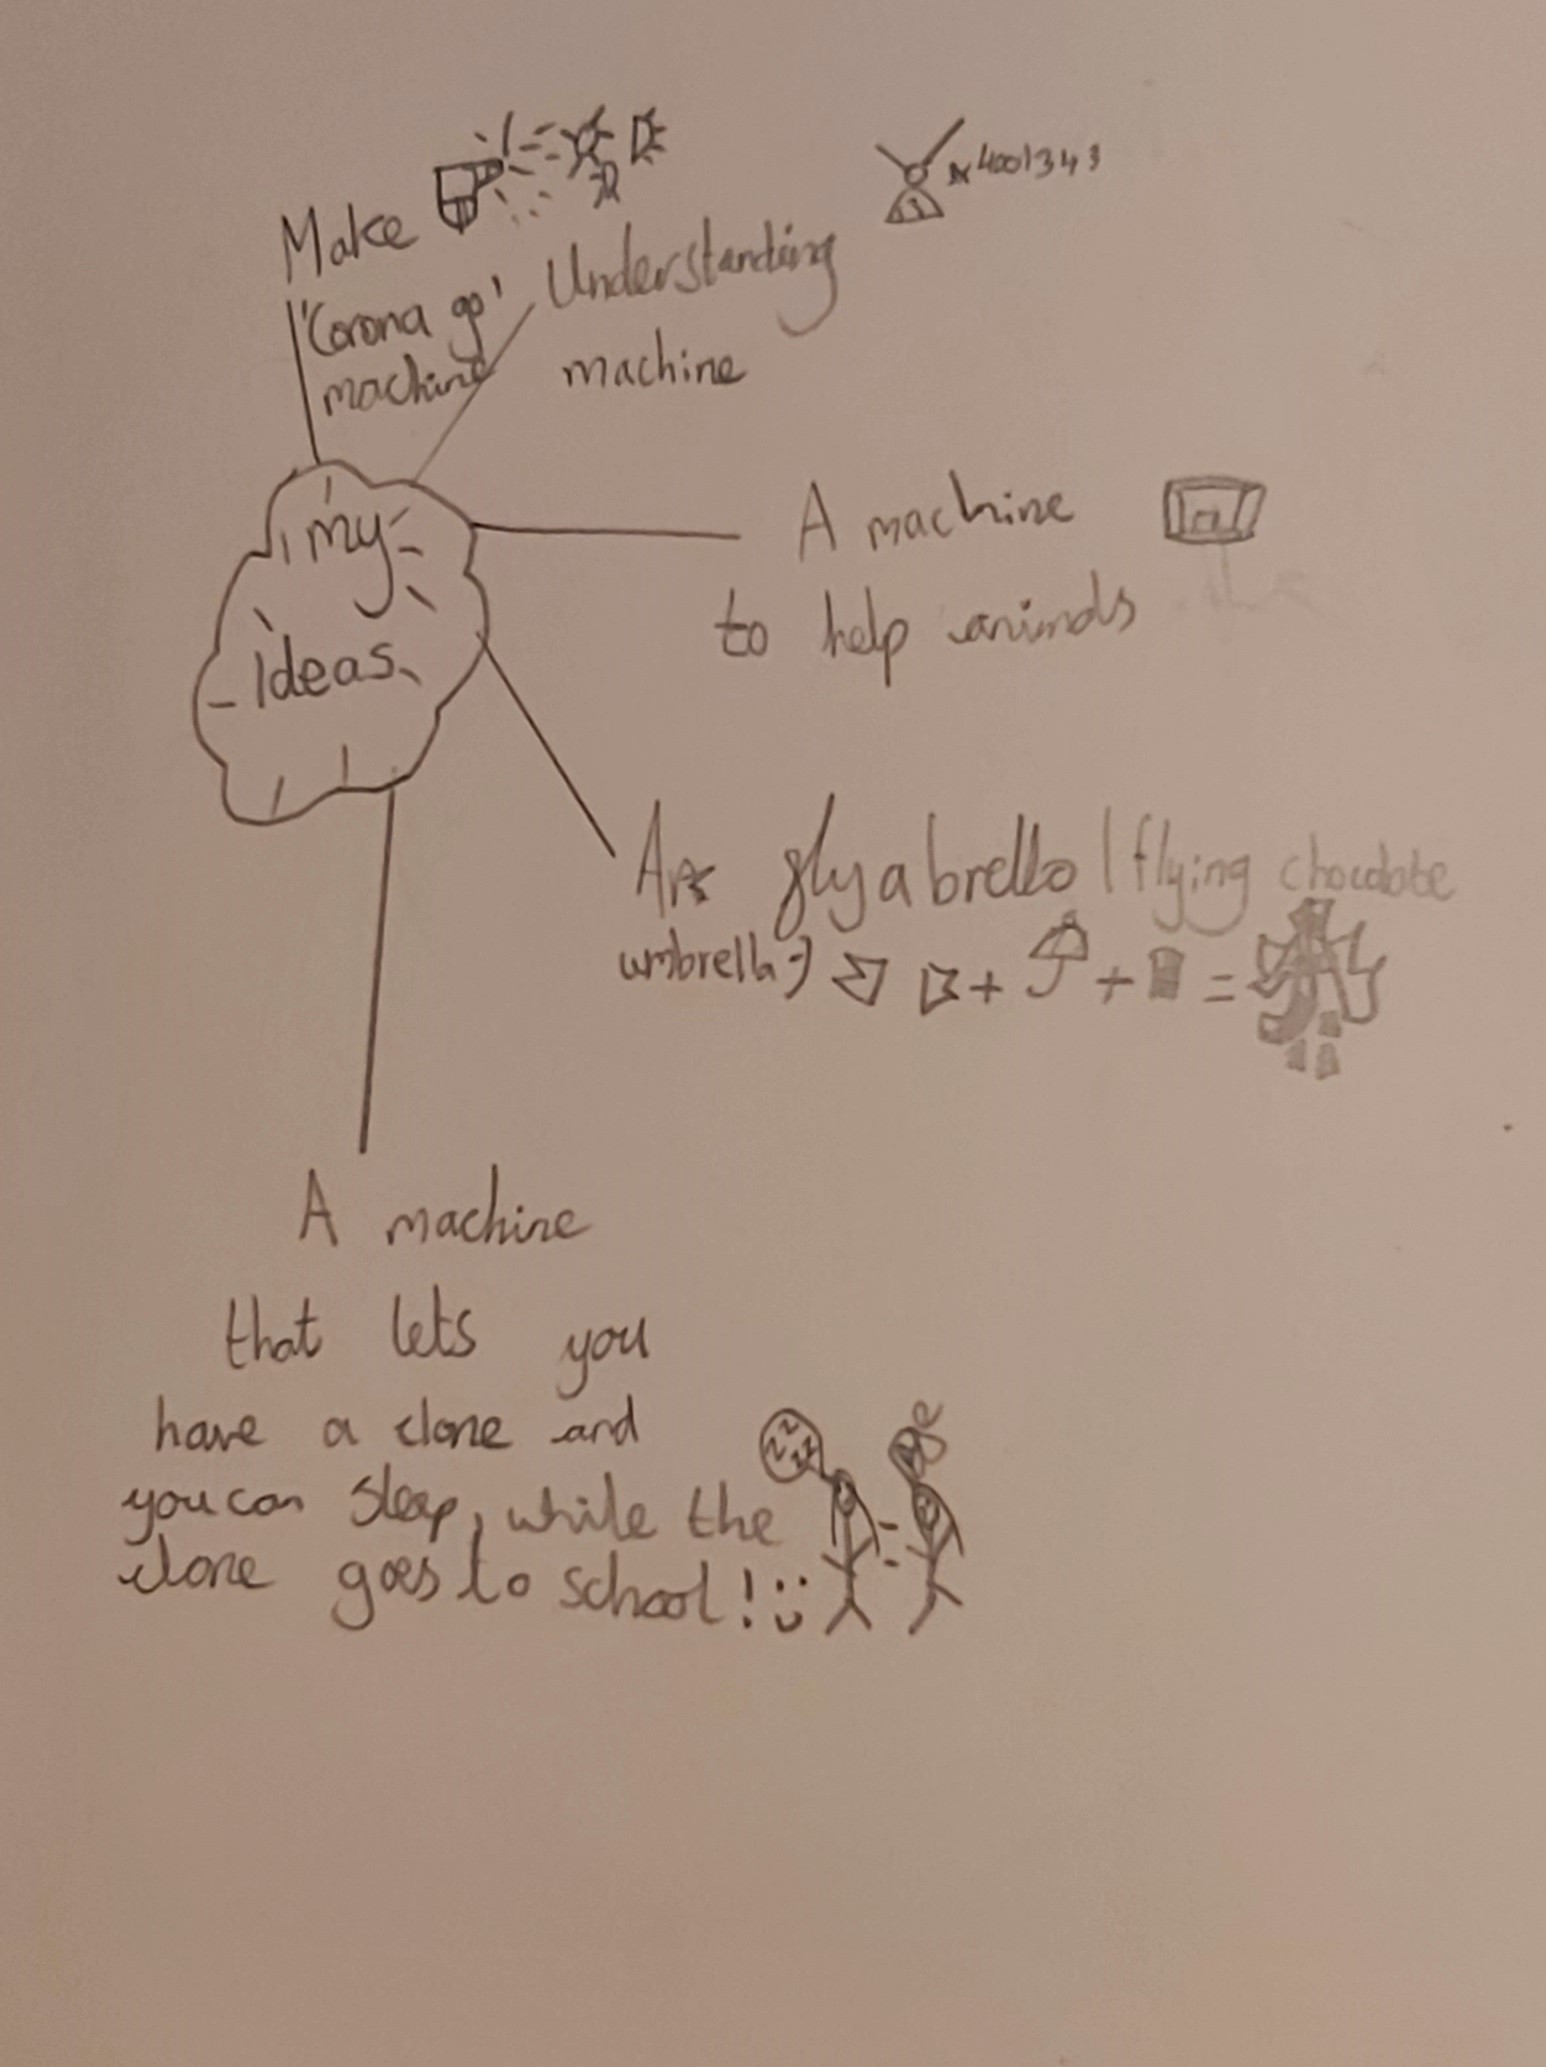 Make
'Corona go'
machine
Understanding
machine
my
ideas
A machine
to help animals
flyabrello / flying chocolate
umbrella
+ + =
A machine
that lets you
have a clone and
you can sleep, while the
clone goes to school! :)